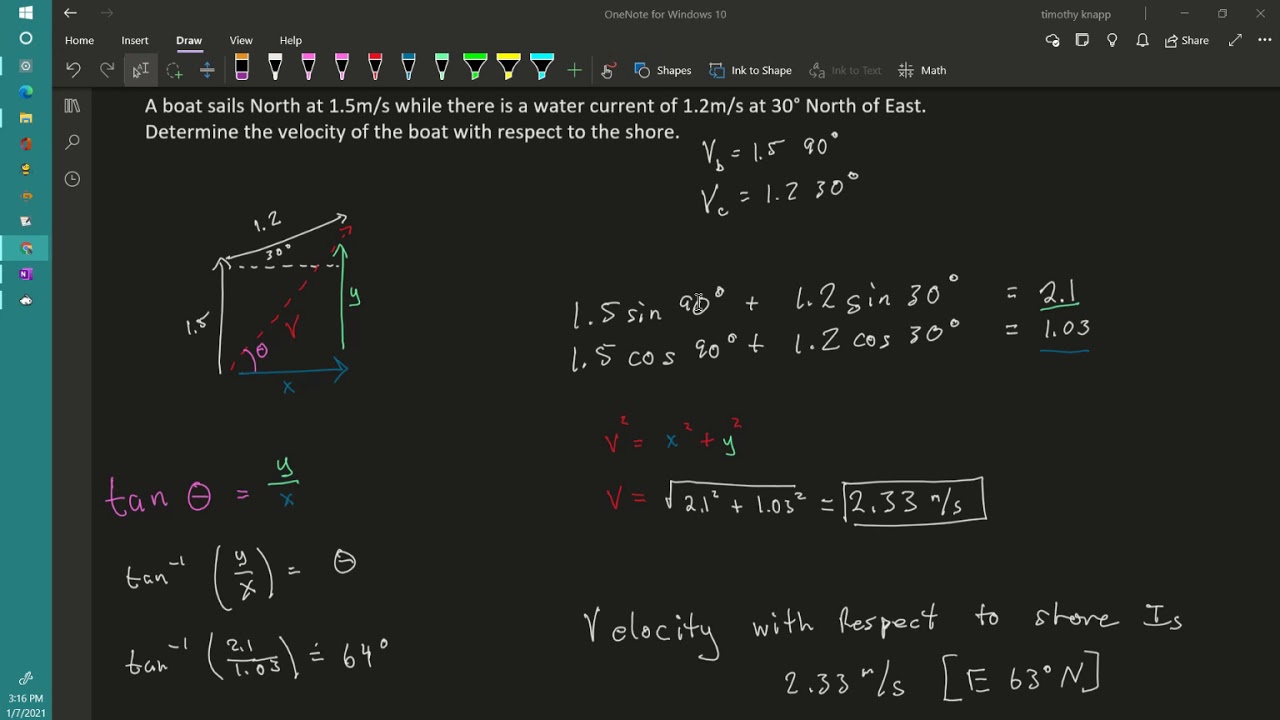 OneNote for Windows 10
timothy knapp
Home Insert Draw View Help
Share
Shapes Ink to Shape Ink to Text Math
A boat sails North at 1.5m/s while there is a water current of 1.2m/s at 30° North of East.
Determine the velocity of the boat with respect to the shore.
V_b = 1.5 90°
V_c = 1.2 30°
1.2
30°
1.5
y
V
θ
x
1.5 sin 90° + 1.2 sin 30° = 2.1
1.5 cos 90° + 1.2 cos 30° = 1.03
V² = x² + y²
V = √2.1² + 1.03² = 2.33 m/s
tan θ = y/x
tan⁻¹ (y/x) = θ
tan⁻¹ (2.1/1.03) ≐ 64°
Velocity with Respect to shore Is
2.33 m/s [E 63° N]
3:16 PM
1/7/2021